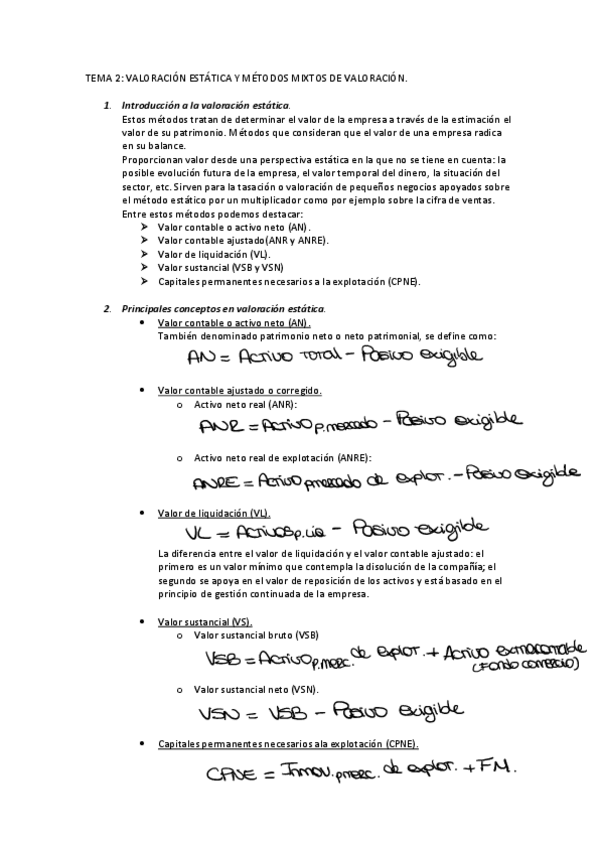 TEMA 2: VALORACIÓN ESTÁTICA Y MÉTODOS MIXTOS DE VALORACIÓN.
1. Introducción a la valoración estática.
Estos métodos tratan de determinar el valor de la empresa a través de la estimación el
valor de su patrimonio. Métodos que consideran que el valor de una empresa radica
en su balance.
Proporcionan valor desde una perspectiva estática en la que no se tiene en cuenta: la
posible evolución futura de la empresa, el valor temporal del dinero, la situación del
sector, etc. Sirven para la tasación o valoración de pequeños negocios apoyados sobre
el método estático por un multiplicador como por ejemplo sobre la cifra de ventas.
Entre estos métodos podemos destacar:
➢ Valor contable o activo neto (AN).
➢ Valor contable ajustado(ANR y ANRE).
➢ Valor de liquidación (VL).
➢ Valor sustancial (VSB y VSN)
➢ Capitales permanentes necesarios a la explotación (CPNE).
2. Principales conceptos en valoración estática.
• Valor contable o activo neto (AN).
También denominado patrimonio neto o neto patrimonial, se define como:
AN = Activo total - Pasivo exigible
• Valor contable ajustado o corregido.
o Activo neto real (ANR):
ANR = Activo p.mercado - Pasivo exigible
o Activo neto real de explotación (ANRE):
ANRE = Activo p.mercado de explor. - Pasivo exigible
• Valor de liquidación (VL).
VL = Activos p.liq - Pasivo exigible
La diferencia entre el valor de liquidación y el valor contable ajustado: el
primero es un valor mínimo que contempla la disolución de la compañía; el
segundo se apoya en el valor de reposición de los activos y está basado en el
principio de gestión continuada de la empresa.
• Valor sustancial (VS).
o Valor sustancial bruto (VSB)
VSB = Activo p.merc. de explor. + Activo extracontable
(Fondo comercio)
o Valor sustancial neto (VSN).
VSN = VSB - Pasivo exigible
• Capitales permanentes necesarios ala explotación (CPNE).
CPNE = Inmov. p.merc. de explor. + FM.